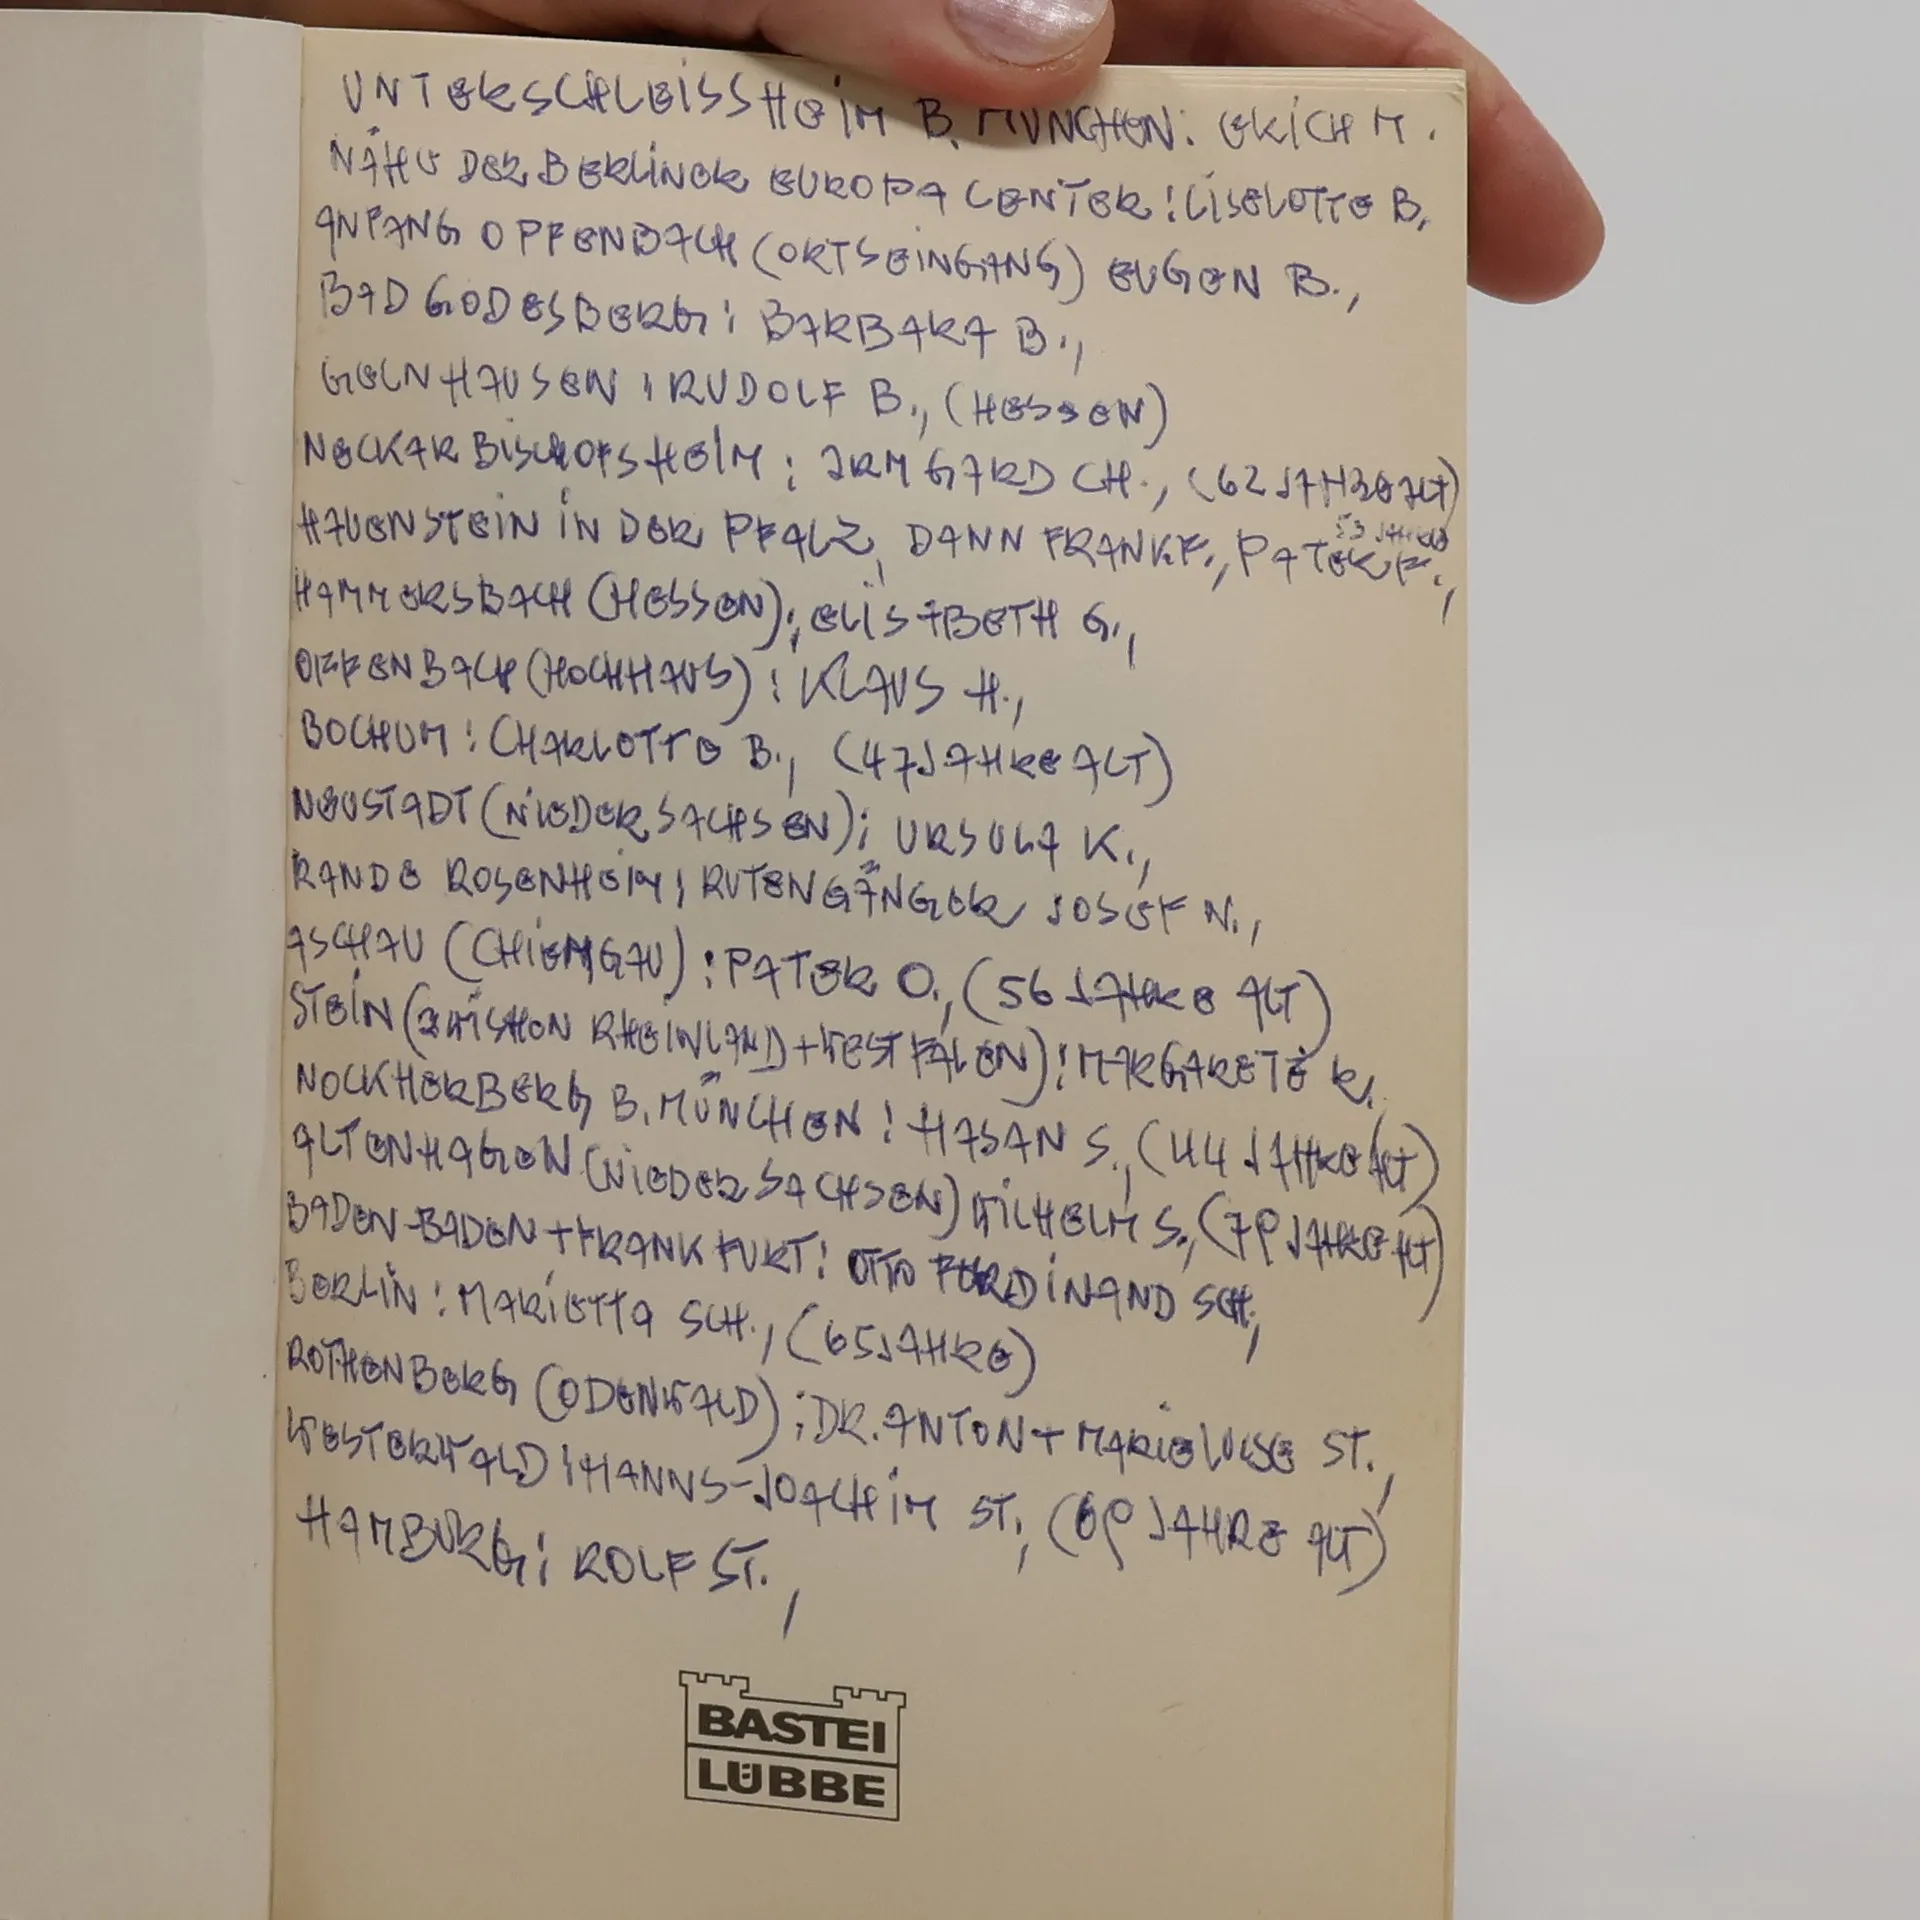 UNTERSCHLEISSHEIM B. MÜNCHEN: ERICH M.
NÄHE DER BERLINER EUROPA CENTER: LISELOTTE B.
ANFANG OFFENBACH (ORTSEINGANG) EUGEN B.,
BAD GODESBERG: BARBARA B.,
GELNHAUSEN: RUDOLF B., (HESSEN)
NECKARBISCHOFSHEIM: IRMGARD CH., (62 JAHRE ALT)
53 JAHRE
HAUENSTEIN IN DER PFALZ, DANN FRANKF., PATER F.,
HAMMERSBACH (HESSEN): ELISABETH G.,
OFFENBACH (HOCHHAUS): KLAUS H.,
BOCHUM: CHARLOTTE B., (47 JAHRE ALT)
NEUSTADT (NIEDERSACHSEN): URSULA K.,
RANDE ROSENHEIM: RUTENGÄNGER JOSEF N.,
ASCHAU (CHIEMGAU): PATER O., (56 JAHRE ALT)
STEIN (ZWISHEN RHEINLAND + WESTFALEN): MARGARETE R.,
NOCKHERBERG B. MÜNCHEN: HASAN S., (44 JAHRE ALT)
ALTENHAGEN (NIEDERSACHSEN) WILHELM S., (79 JAHRE ALT)
BADEN-BADEN + FRANKFURT: OTTO FERDINAND SCH.,
BERLIN: MARIETTA SCH., (65 JAHRE)
ROTHENBERG (ODENWALD): DR. ANTON + MARIELUISE ST.,
WESTERWALD: HANNS-JOACHIM ST., (69 JAHRE ALT)
HAMBURG: ROLF ST.,
BASTEI
LÜBBE